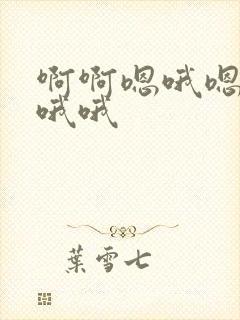 啊啊嗯哦嗯
哦哦
葉雪七